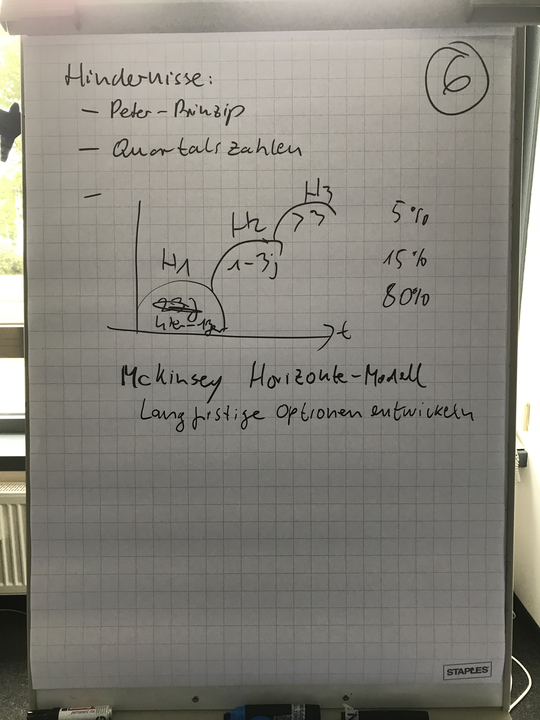 6
Hindernisse:
– Peter-Prinzip
– Quartalszahlen
–
H3
> 3
5%
H2
1-3j
15%
H1
80%
t
McKinsey Horizonte-Modell
Langfristige Optionen entwickeln
STAPLES